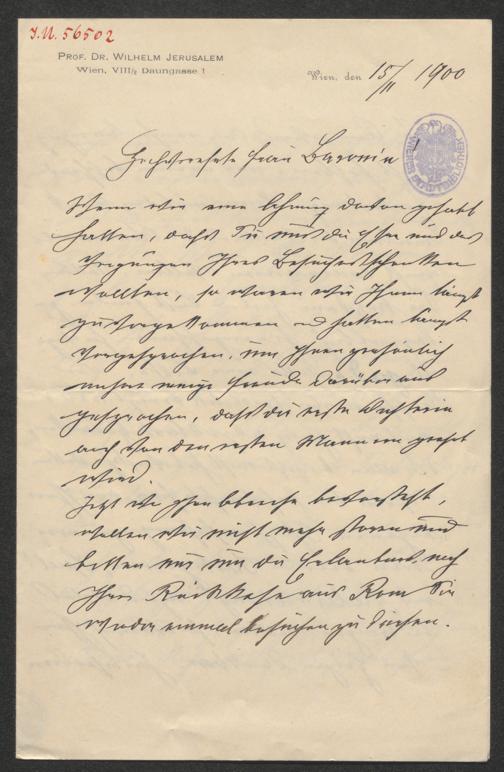 J.N. 56502
PROF. DR. WILHELM JERUSALEM
Wien, VIII/2 Daungasse 1
Wien, den 15/II 1900
Hochverehrte Frau Baronin!
Wenn wir eine Ahnung davon gehabt
hätten, daß Sie uns die Ehre und das
Vergnügen Ihres Besuches schenken
wollten, so wären wir Ihnen längst
zuvorgekommen und hätten längst
vorgesprochen, um Ihnen persönlich
unsere innige Freude darüber aus
gesprochen, daß die erste Dichterin
auch von den ersten Männern geehrt
wird.
Jetzt wo Ihre Abreise bevorsteht,
wollen wir nicht mehr stören und
bitten nur um die Erlaubnis, nach
Ihrer Rückkehr aus Rom Sie
wieder einmal besuchen zu dürfen.